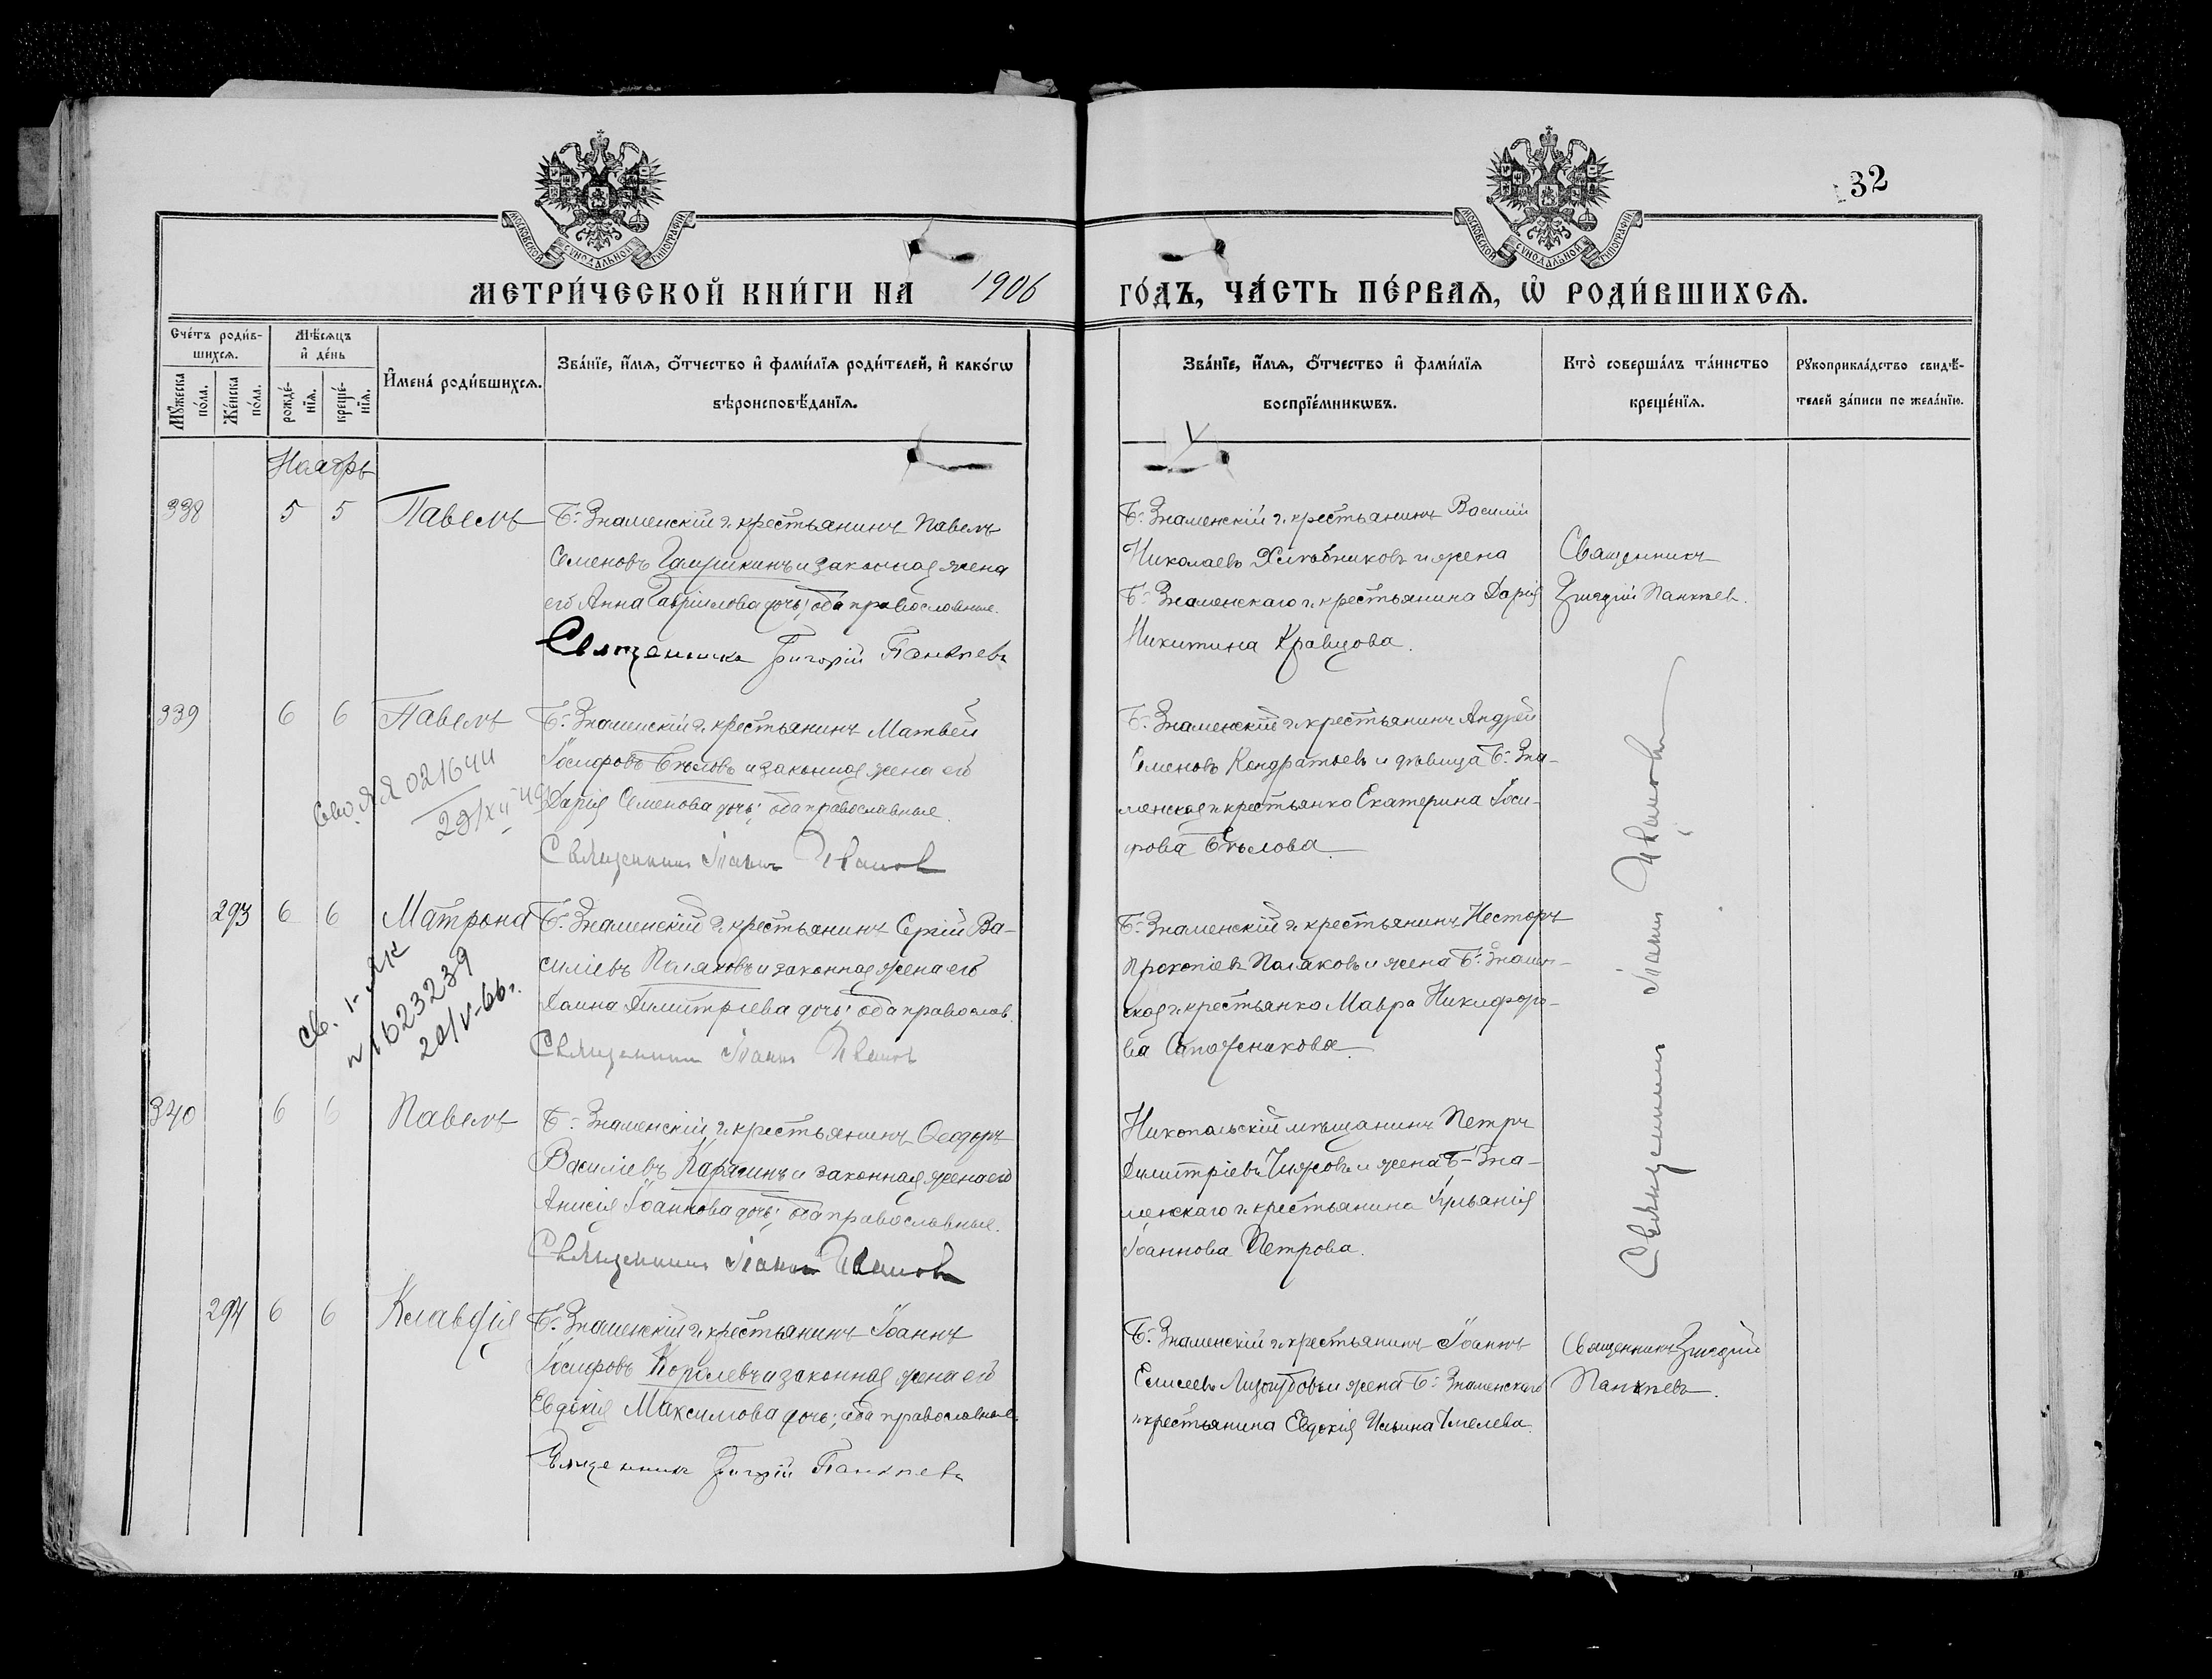 32
МОСКОВСКОЙ СѴНОДАЛЬНОЙ ТИПОГРАФІИ
МОСКОВСКОЙ СѴНОДАЛЬНОЙ ТИПОГРАФІИ
МЕТРИ́ЧЕСКОЙ КНИ́ГИ НА 1906 ГО́ДЪ, ЧА́СТЬ ПЕ́РВАѦ, Ѽ РОДИ́ВШИХСѦ.
Сче́тъ роди́в-
шихсѧ.
Мꙋ́жеска
по́ла.
Же́нска
по́ла.
Мѣ́сѧцъ
и҆ де́нь
рожде́-
нїѧ.
креще́-
нїѧ.
И҆мена̀ роди́вшихсѧ.
Зва́нїе, и҆́мѧ, ѻ҆́тчество и҆ фами́лїѧ роди́телей, и҆ како́гѡ
вѣроисповѣ́данїѧ.
Зва́нїе, и҆́мѧ, ѻ҆́тчество и҆ фами́лїѧ
воспрїе́мникѡвъ.
Кто̀ соверша́лъ та́инство
креще́нїѧ.
Рꙋкоприкла́дство свидѣ́-
телей за́писи по жела́нїю.
Ноябрь
338 5 5 Павелъ
Б. Знаменскій г. крестьянинъ Павелъ
Семеновъ и законная жена
его Анна Гавріилова дочь; оба православные.
Священникъ Григорій Пантѣевъ
Б. Знаменскій г. крестьянинъ Василій
Николаевъ Хлѣбниковъ и жена
Б. Знаменскаго г. крестьянина Дарія
Никитина Кравцова.
Священникъ
Григорій Пантѣев.
339 6 6 Павелъ
Б. Знаменскій г. крестьянинъ Матвей
Іосифовъ Бѣловъ и законная жена его
Дарія Семенова дочь; оба православные.
Священникъ Іоаннъ Иванов
021644
29/XII
Б. Знаменскій г. крестьянинъ Андрей
Семеновъ Кондратьевъ и дѣвица Б. Зна-
менская г. крестьянка Екатерина Іоси-
фова Бѣлова
293 6 6 Матрона
Б. Знаменскій г. крестьянинъ Сергій Ва-
силіевъ Поляковъ и законная жена его
Домна Димитріева дочь; оба православ.
Священникъ Іоаннъ Ивановъ
Св. 1-ЯК
№ 1623239
20/V-66г.
Б. Знаменскій г. крестьянинъ Несторъ
Прокопіевъ Поляковъ и жена Б. Знамен-
ская г. крестьянка Мавра Никифоро-
ва Сапожникова.
Священникъ Іоаннъ Ивановъ
340 6 6 Павелъ
Б. Знаменскій г. крестьянинъ Ѳеодоръ
Василіевъ Карягинъ и законная жена его
Анисія Іоаннова дочь; оба православные.
Священникъ Іоаннъ Ивановъ
Никопольскій мѣщанинъ Петръ
Димитріевъ Чижовъ и жена Б. Зна-
менскаго г. крестьянина Іуліанія
Іоаннова Петрова.
294 6 6 Клавдія
Б. Знаменскій г. крестьянинъ Іоаннъ
Іосифовъ Королевъ и законная жена его
Евдокія Максимова дочь; оба православные.
Священникъ Григорій Пантѣевъ
Б. Знаменскій г. крестьянинъ Іоаннъ
Елисеевъ Лизогубовъ и жена Б. Знаменскаго
г. крестьянина Евдокія Ильина
Священникъ Григорій
Пантѣевъ.